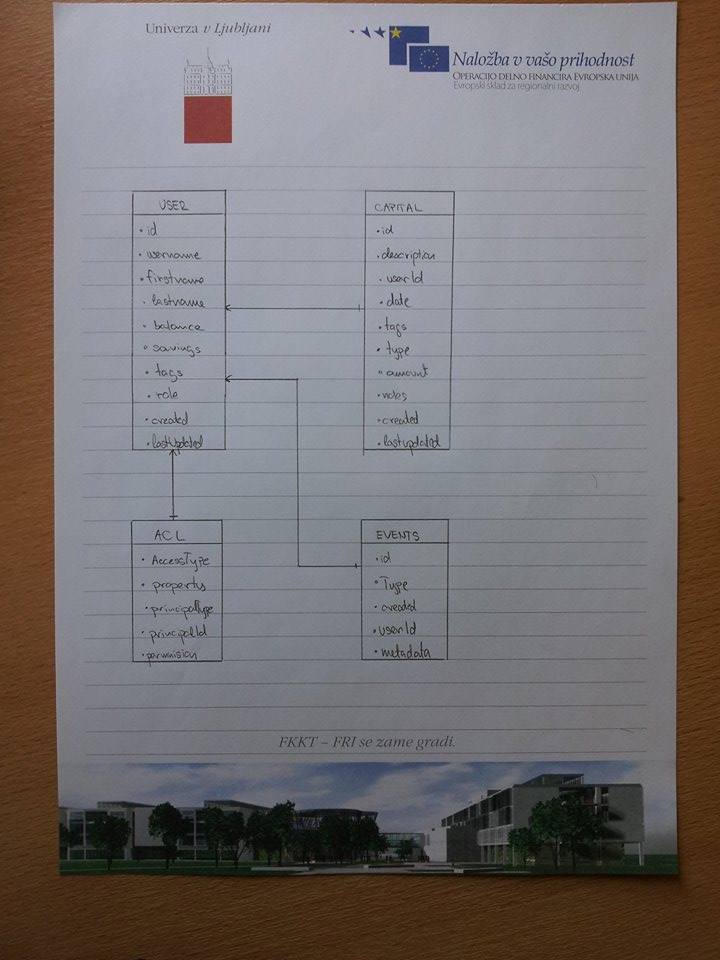 Univerza v Ljubljani
Naložba v vašo prihodnost
OPERACIJO DELNO FINANCIRA EVROPSKA UNIJA
Evropski sklad za regionalni razvoj
USER
• id
• username
• firstname
• lastname
• balance
• savings
• tags
• role
• created
• lastUpdated
CAPITAL
• id
• description
• userId
• date
• tags
• type
• amount
• notes
• created
• lastupdated
ACL
• AccessType
• property
• principalType
• principalId
• permision
EVENTS
• id
• Type
• created
• userId
• metadata
FKKT – FRI se zame gradi.